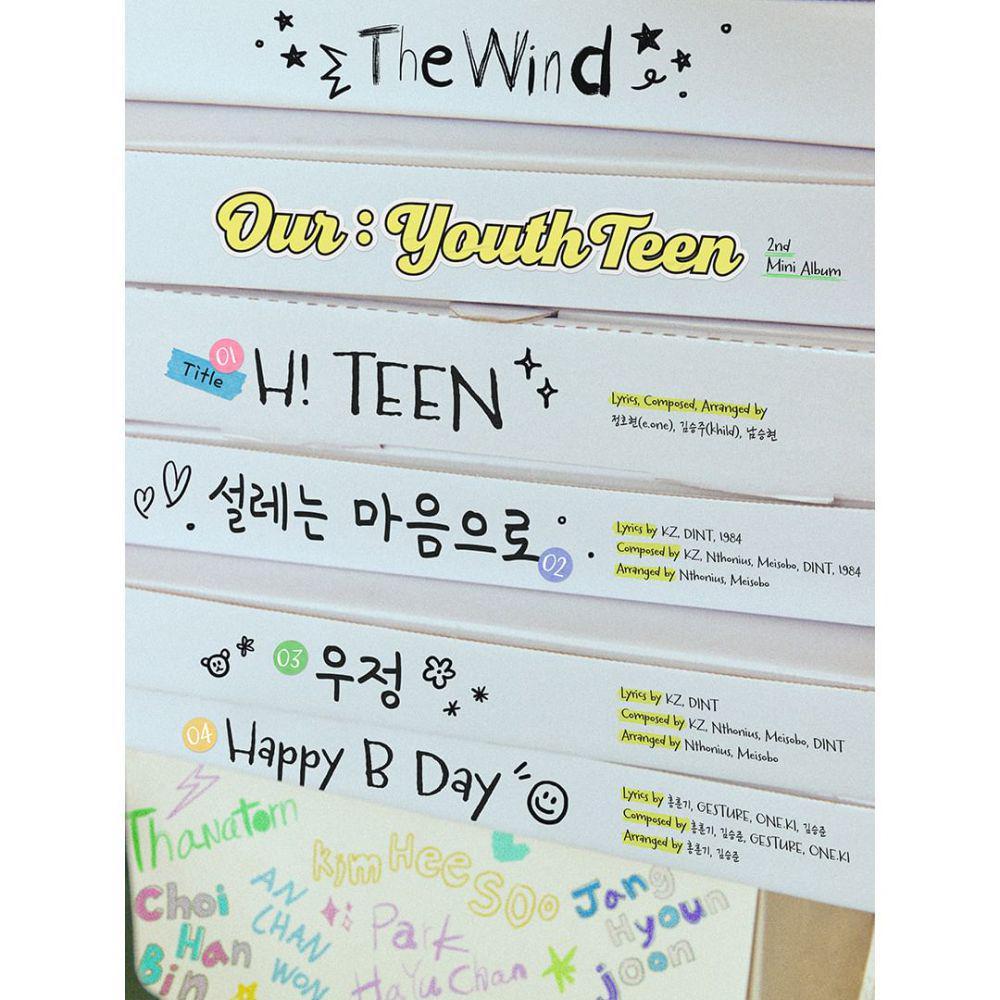 The Wind
Our : YouthTeen
2nd
Mini Album
01
Title
H! TEEN
Lyrics, Composed, Arranged by
정호현(e.one), 김승주(Khild), 남승현
설레는 마음으로
02
Lyrics by KZ, DINT, 1984
Composed by KZ, Nthonius, Meisobo, DINT, 1984
Arranged by Nthonius, Meisobo
03
우정
Lyrics by KZ, DINT
Composed by KZ, Nthonius, Meisobo, DINT
Arranged by Nthonius, Meisobo
04
Happy B Day
Lyrics by 홍훈기, GESTURE, ONE.KI, 김승준
Composed by 홍훈기, 김승준, GESTURE, ONE.KI
Arranged by 홍훈기, 김승준
Thanatorn
Kim Hee
Soo
Choi
Han
Bin
AN
CHAN
WON
Park
Ha Yu Chan
Jang
Hyoun
joon